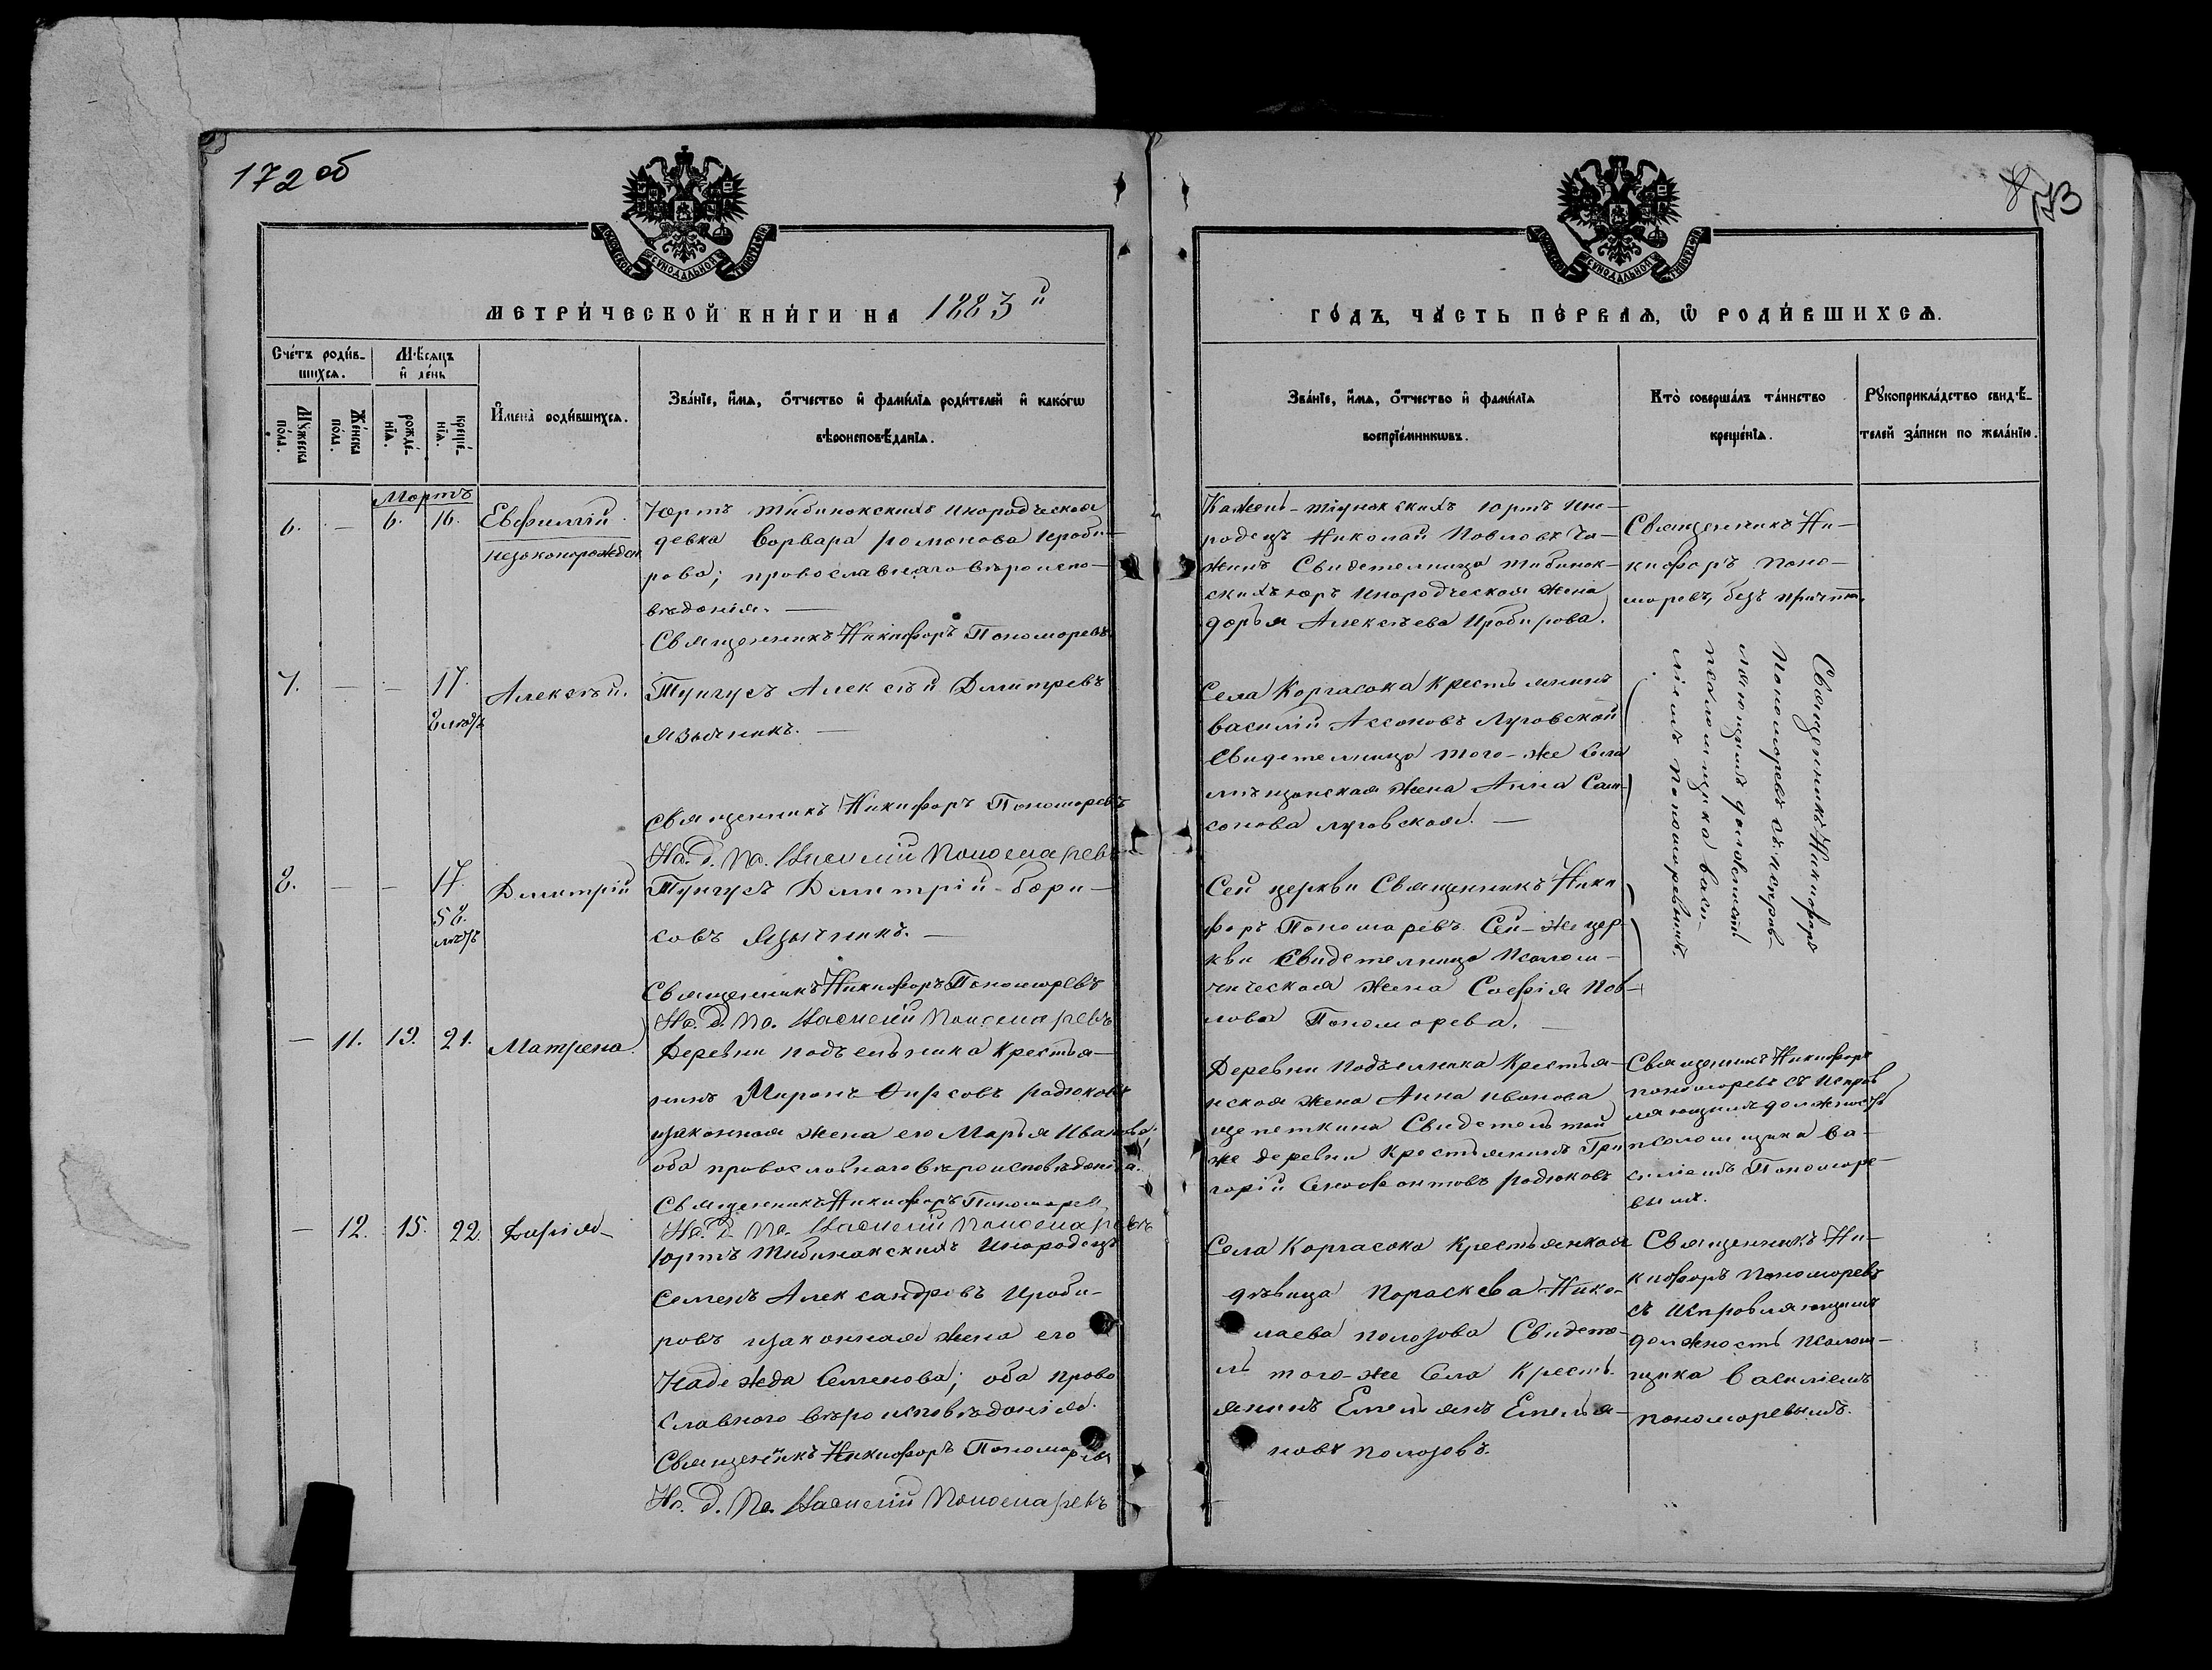 172 об
73
МОСКОВСКОЙ СѴНОДАЛЬНОЙ ТИПОГРАФІИ
МОСКОВСКОЙ СѴНОДАЛЬНОЙ ТИПОГРАФІИ
МЕТРИ́ЧЕСКОЙ КНИ́ГИ НА 1883й
ГО́ДЪ, ЧА́СТЬ ПЕ́РВАЯ, Ѡ РОДИ́ВШИХСѦ.
Сче́тъ роди́в-
шихсѧ.
Мꙋ́жеска по́ла.
Же́нска по́ла.
Мѣ́сяцъ
и҆ де́нь
рожде́-
нїѧ.
креще́-
нїѧ.
И҆мена̀ роди́вшихсѧ.
Зва́нїе, и҆́мѧ, ѻ҆́тчество и҆ фами́лїѧ роди́телей и҆ како́гѡ
вѣроисповѣ́данїѧ.
Зва́нїе, и҆́мѧ, ѻ҆́тчество и҆ фами́лїѧ
воспрїе́мникѡвъ.
Кто̀ соверша́лъ та́инство
креще́нїѧ.
Рꙋкоприкла́дство свидѣ́-
телей за́писи по жела́нїю.
Мартъ
6. — 6. 16. Евфимій
незаконорожден
Юртъ Тибинакскихъ инородческая
девка Варвара Романова Ироби-
рова; православнаго вѣроиспо-
вѣданія. —
Священникъ Никифоръ Пономоревъ
Юртъ Ино-
родецъ Николай Павловъ Ча-
жинъ Свидетельница Тибинак-
скихъ юръ Инородческая жена
Дарья Алексѣева Иробирова.
Священникъ Ни-
кифоръ Поно-
моревъ, безъ причта.
7. — — 17. Алексѣй.
Тунгусъ Алексѣй Дмитревъ
Язычникъ. —
Священникъ Никифоръ Пономоревъ
Ис. д. Пс. Василій Пономаревъ
Села Каргасока Крестьянинъ
Василій Асоновъ Луговской
Свидетельница того-же села
мѣщанская жена Анна Сам-
сонова Луговская. —
Священникъ Никифоръ
Пономоревъ съ исправ-
ляющимъ должность
псаломщика Васи-
ліемъ Пономоревымъ.
8. — — 17. Дмитрій
Тунгусъ Дмитрій Бори-
совъ Язычникъ. —
Священникъ Никифоръ Пономоревъ
Ис. д. Пс. Василій Пономаревъ
Сей церкви Священникъ Ники
форъ Пономаревъ. Сей-же цер
кви Свидетельница Псалом-
ческая жена Софія Пав-
лова Пономорева. —
— 11. 19. 21. Матрена.
Деревни Подъельника Крестья-
нинъ Миронъ Фирсовъ Родюковъ
изаконная жена его Марья Иванова.
оба православнаго вѣроисповѣданія.
Священникъ Никифоръ Пономорев
Ис. д. Пс. Василій Пономаревъ
Деревни Подъельника Крестья-
нская жена Анна Иванова
Щепеткина Свидетель той
же деревни Крестьянинъ Гри
горій Ксенофонтовъ Родюковъ
Священникъ Никифоръ
Пономоревъ съ исправ
ляющимъ должность
псаломщика Ва-
силіемъ Пономоре-
вымъ.
— 12. 15. 22. Дарія
Юртъ Тибинакскихъ Инородецъ
Семенъ Александровъ Ироби-
ровъ изаконная жена его
Надежда Семенова; оба право
славного вѣроисповѣданія.
Священникъ Никифоръ Пономоревъ
Ис. д. Пс. Василій Пономаревъ
Села Каргасока Крестьянская
дѣвица Параскева Нико-
лаева Полозова Свидете-
ль того-же Села Кресть-
янинъ Емельянъ Емелья-
новъ Полозовъ.
Священникъ Ни-
кифоръ Пономоревъ
съ исправляющимъ
должность Псалом-
щика Василіемъ
Пономоревымъ.